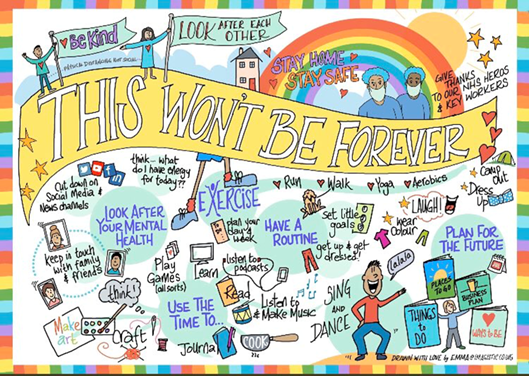 Be KIND
PHYSICAL DISTANCING NOT SOCIAL
LOOK AFTER EACH
OTHER
STAY HOME
STAY SAFE
GIVE
THANKS
TO OUR NHS HEROS
& KEY WORKERS
THIS WON'T BE FOREVER
think - what
do I have energy
for today??
Cut down on
Social Media &
News channels
EXERCISE
Run
Walk
Yoga
Aerobics
CAMP
OUT
Dress
Up
LAUGH!
wear
Colour
LOOK AFTER
YOUR MENTAL
HEALTH
plan your
day &
week
HAVE A
ROUTINE
Set little
goals
get up & get
dressed!
PLAN FOR
THE FUTURE
keep in touch
with family
& friends
think!
Play
Games
(all sorts)
Learn
listen to
podcasts
Read
Listen to
& Make Music
USE THE
TIME TO...
Make
art
Craft
Journal
COOK
SING
AND
DANCE
lalala
PLACES
TO GO
BUSINESS
PLAN
THINGS
to
DO
WAYS TO BE
DRAWN WITH LOVE by EMMA@IMAGISTIC.CO.UK